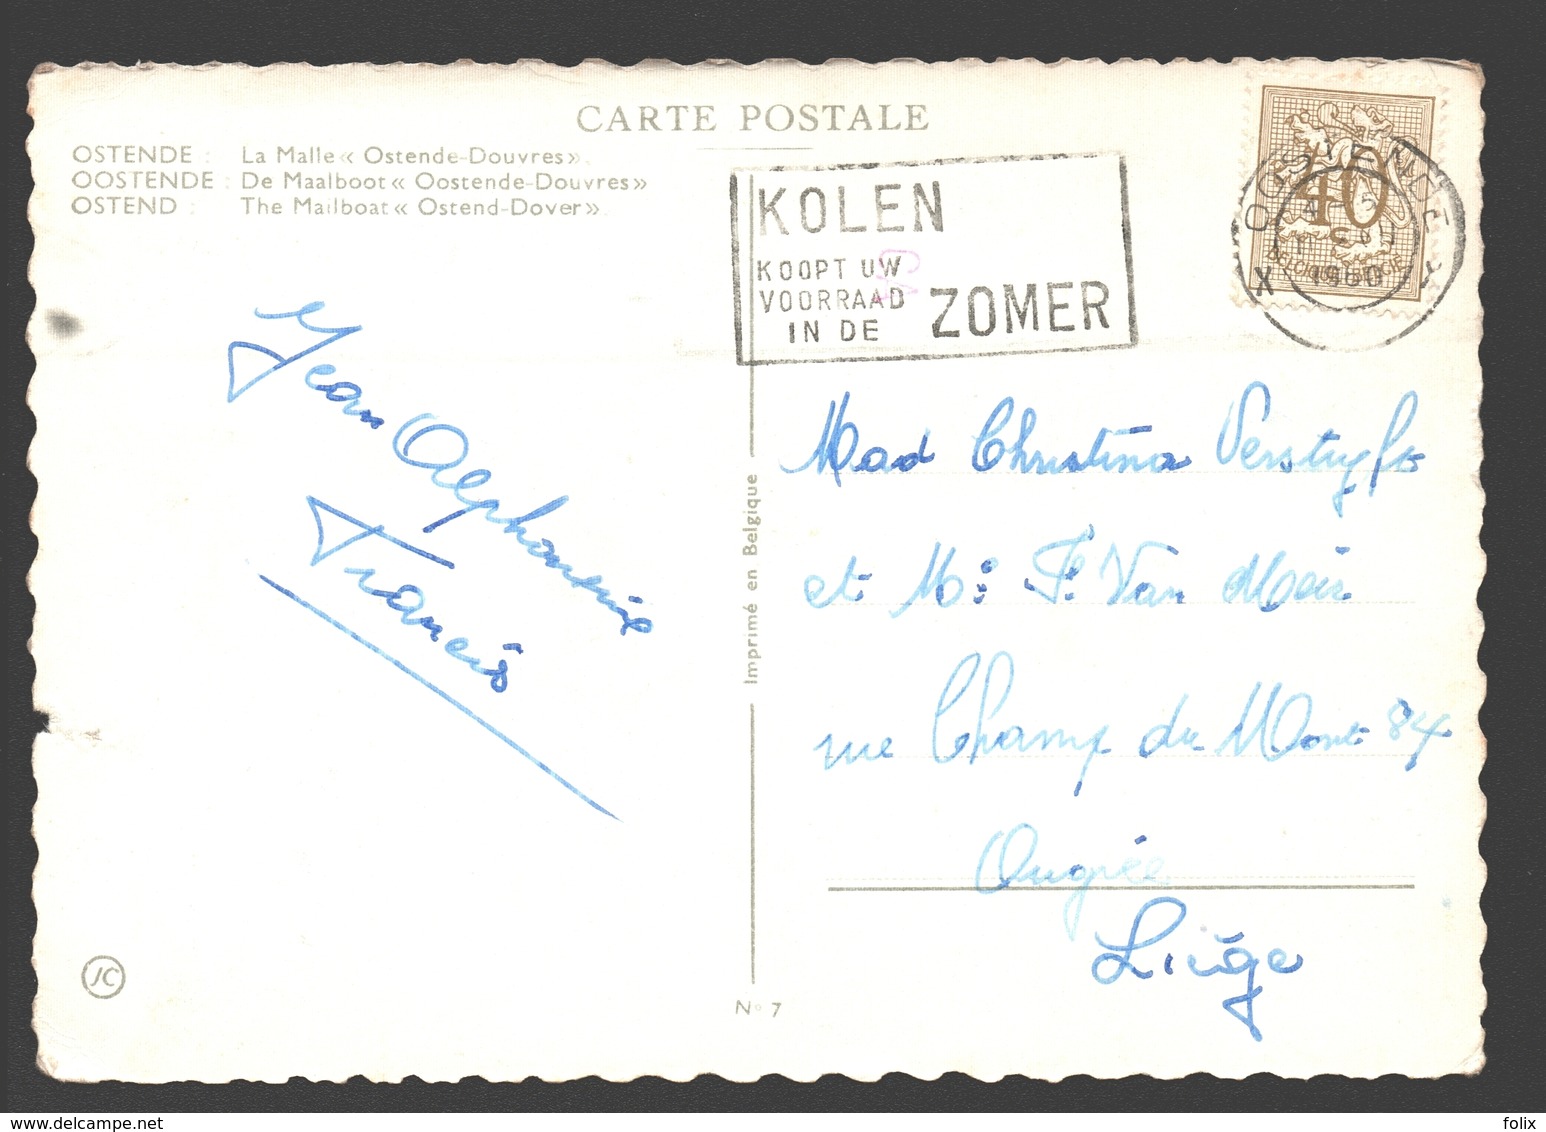 CARTE POSTALE
OSTENDE : La Malle « Ostende-Douvres ».
OOSTENDE : De Maalboot « Oostende-Douvres »
OSTEND : The Mailboat « Ostend-Dover ».
KOLEN
KOOPT UW
VOORRAAD
IN DE ZOMER
OOSTENDE
1960
40
Jean Alphonsine
Francis
Mad Christina
et M: F. Van Meir
rue Champ du Mont 84
Ougrée
Liége
Imprimé en Belgique
JC
No 7
delcampe.net
folix